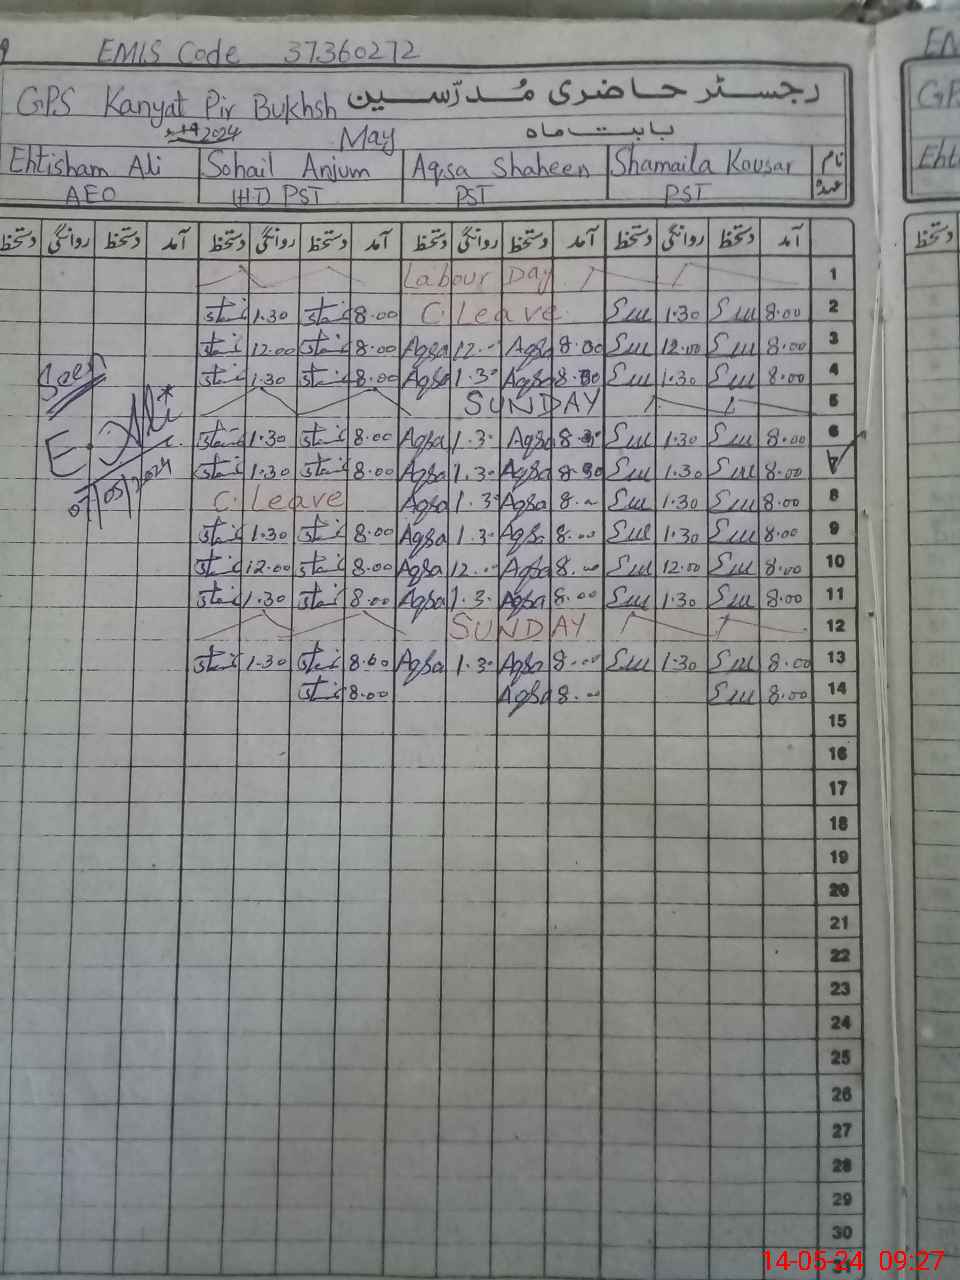 EMIS Code 37360272
GPS Kanyat Pir Bukhsh رجسٹر حاضری مُدرّسین
2024 May بابت ماہ
Ehtisham Ali Sohail Anjum Aqsa Shaheen Shamaila Kousar نام
AEO (HT) PST PST PST عہدہ
دستخط روانگی دستخط آمد دستخط روانگی دستخط آمد دستخط روانگی دستخط آمد دستخط روانگی دستخط آمد
Labour Day 1
1.30 8.00 C. Leave 1.30 8.00 2
12.00 8.00 Aqsa 12.00 Aqsa 8.00 12.00 8.00 3
1.30 8.00 Aqsa 1.30 Aqsa 8.00 1.30 8.00 4
SUNDAY 5
1.30 8.00 Aqsa 1.30 Aqsa 1.30 8.00 6
1.30 8.00 Aqsa 1.30 Aqsa 1.30 8.00 7
C. Leave Aqsa 1.30 Aqsa 8.00 1.30 8.00 8
1.30 8.00 Aqsa 1.30 Aqsa 8.00 1.30 8.00 9
12.00 8.00 Aqsa 12.00 Aqsa 8.00 12.00 8.00 10
1.30 8.00 Aqsa 1.30 Aqsa 8.00 1.30 8.00 11
SUNDAY 12
1.30 8.00 Aqsa 1.30 Aqsa 8.00 1.30 8.00 13
8.00 Aqsa 8.00 8.00 14
Seen
E. Ali
07/05/2024
15
16
17
18
19
20
21
22
23
24
25
26
27
28
29
30
31
دستخط
14-05-24 09:27